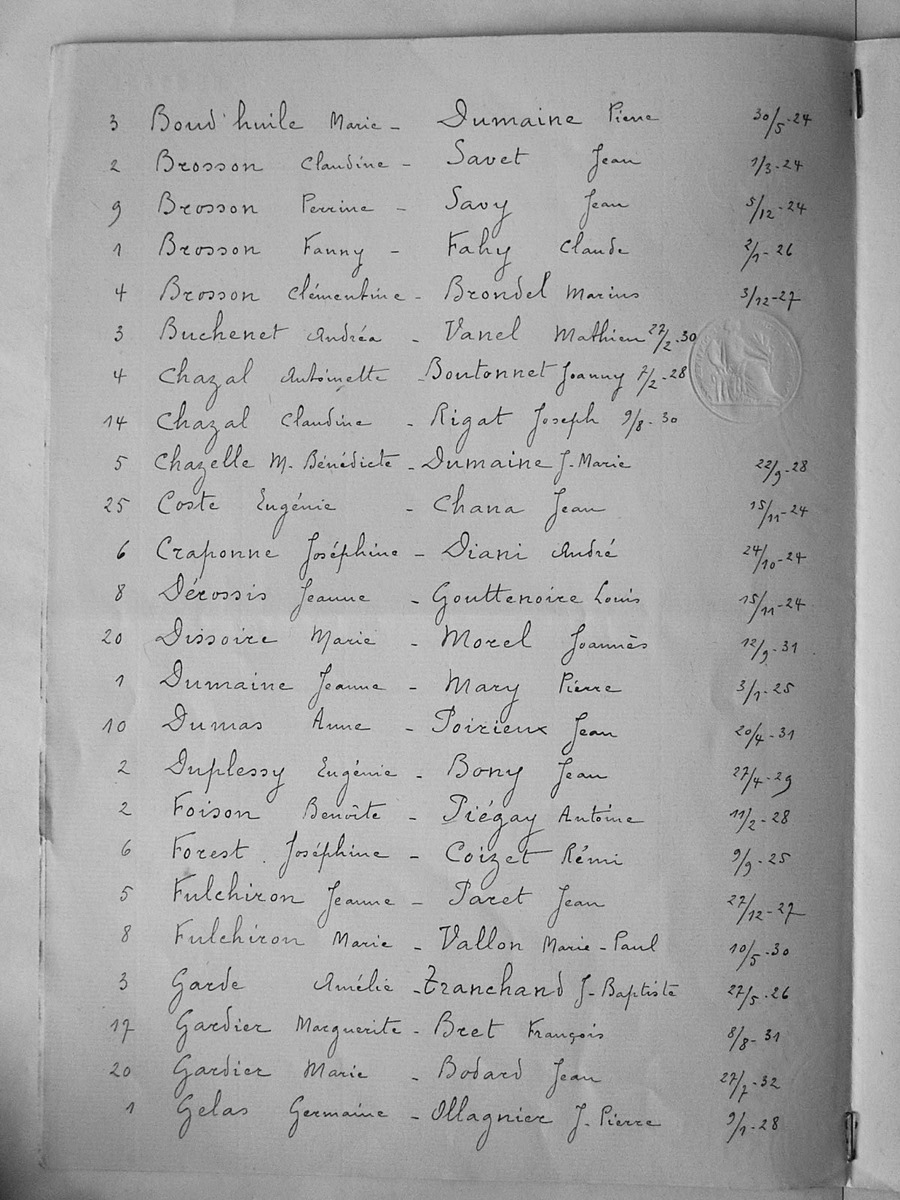 3 Boud'huile Marie - Dumaine Pierre 30/5-24
2 Brosson Claudine - Savet Jean 1/3-24
9 Brosson Perrine - Savy Jean 5/12-24
1 Brosson Fanny - Fahy Claude 2/1-26
4 Brosson Clémentine - Brondel Marius 3/12-27
3 Buchenet Andréa - Vanel Mathieu 27/2-30
4 Chazal Antoinette - Boutonnet Joanny 7/2-28
14 Chazal Claudine - Rigat Joseph 9/8-30
5 Chazelle M. Bénédicte - Dumaine J-Marie 22/9-28
25 Coste Eugénie - Chana Jean 15/11-24
6 Craponne Joséphine - Diani André 24/10-24
8 Dérossis Jeanne - Gouttenoire Louis 15/11-24
20 Dissoire Marie - Morel Joannès 12/9-31
1 Dumaine Jeanne - Mary Pierre 3/1-25
10 Dumas Anne - Poirieux Jean 20/4-31
2 Duplessy Eugénie - Bony Jean 27/4-29
2 Foison Benoîte - Piégay Antoine 11/2-28
6 Forest Joséphine - Coizet Rémi 9/9-25
5 Fulchiron Jeanne - Paret Jean 27/12-27
8 Fulchiron Marie - Vallon Marie-Paul 10/5-30
3 Garde Amélie - Tranchand J-Baptiste 27/5-26
17 Gardier Marguerite - Bret François 8/8-31
20 Gardier Marie - Bodard Jean 27/7-32
1 Gelas Germaine - Ollagnier J-Pierre 9/1-28